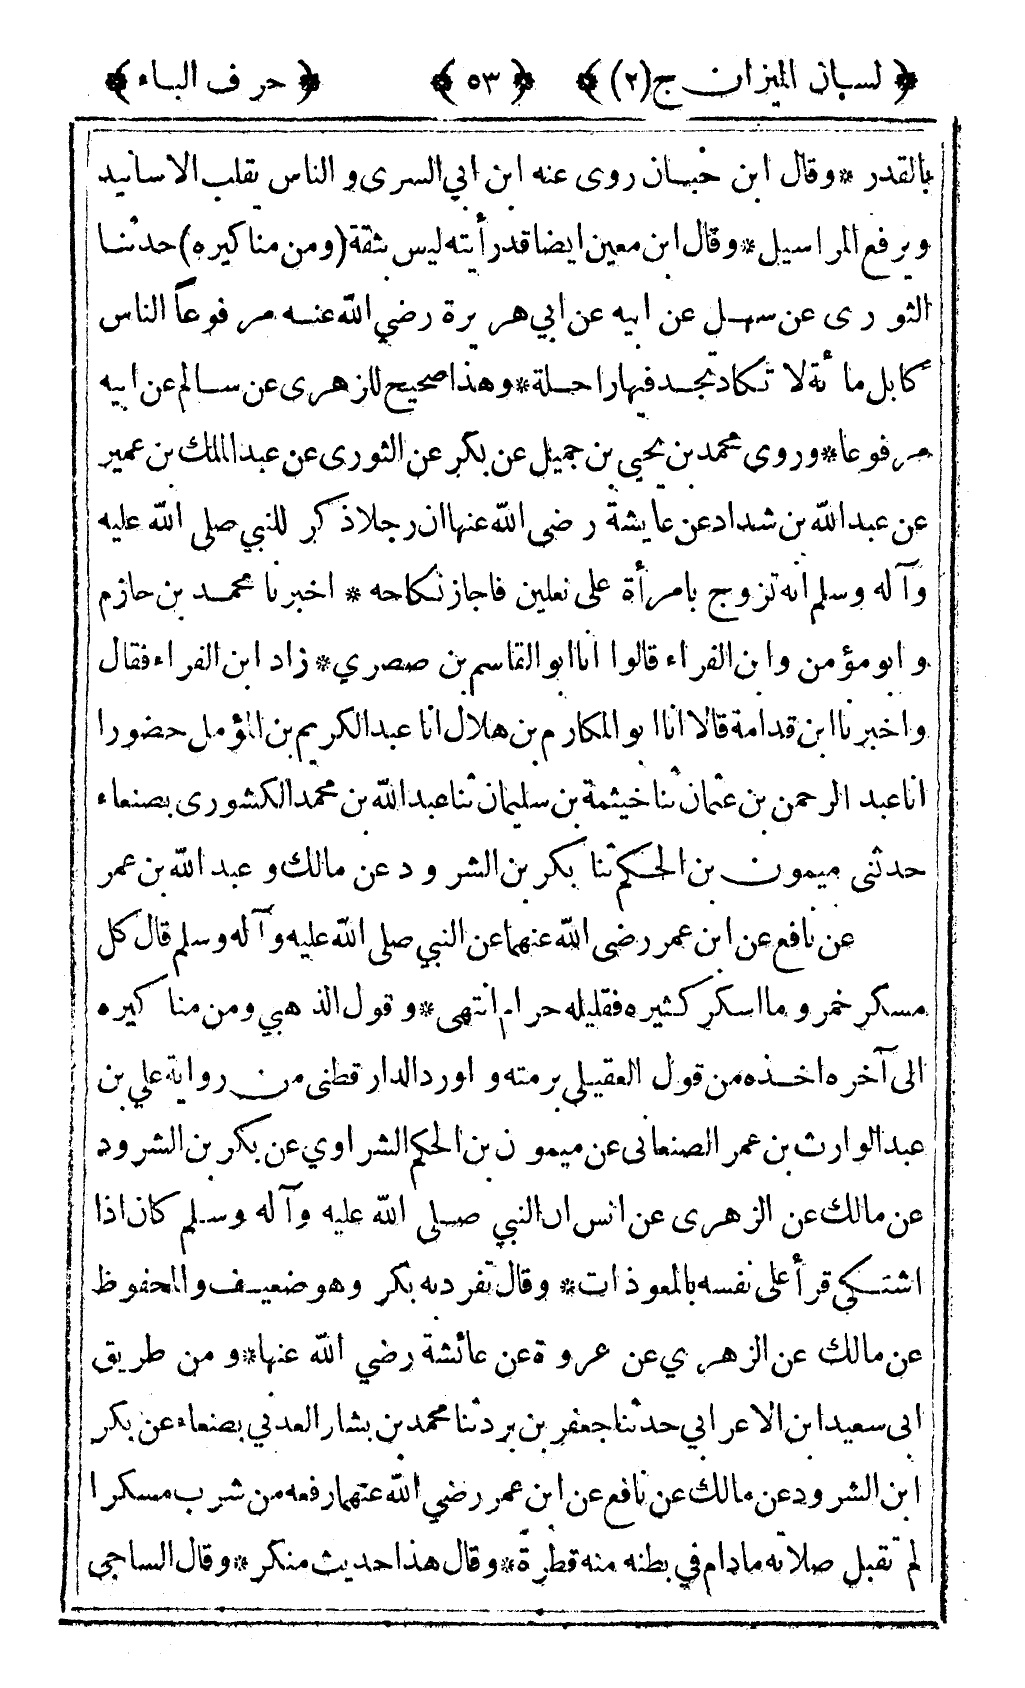 ﴿ لسان الميزان ج(٢) ﴾ ﴿ ٥٣ ﴾ ﴿ حرف الباء ﴾
بالقدر * وقال ابن حبان روى عنه ابن ابي السرى و الناس يقلب الاسانيد
ويرفع المراسيل * وقال ابن معين ايضا قد رأيته ليس بثقة (ومن مناكيره) حدثنا
الثورى عن سهل عن ابيه عن ابي هريرة رضي الله عنه مرفوعاً الناس
كابل مائة لا تكاد تجد فيها راحلة * وهذا صحيح للزهرى عن سالم عن ابيه
مرفوعا * وروي محمد بن يحيي بن جميل عن بكر عن الثورى عن عبد الملك بن عمير
عن عبد الله بن شداد عن عايشة رضى الله عنها ان رجلا ذكر للنبي صلى الله عليه
وآله وسلم انه تزوج بامرأة على نعلين فاجاز نكاحه * اخبرنا محمد بن حازم
و ابو مؤمن وابن الفراء قالوا انا ابو القاسم بن صصري * زاد ابن الفراء فقال
واخبرنا ابن قدامة قالا انا ابو المكارم بن هلال انا عبد الكريم بن المؤمل حضورا
انا عبد الرحمن بن عثمان ثنا خيثمة بن سليمان ثنا عبد الله بن محمد الكشورى بصنعاء
حدثنى ميمون بن الحكم ثنا بكر بن الشرود عن مالك و عبد الله بن عمر
عن نافع عن ابن عمر رضى الله عنهما عن النبي صلى الله عليه وآله وسلم قال كل
مسكر خمر وما اسكر كثيره فقليله حرام انتهى * وقول الذهبي ومن مناكيره
الى آخره اخذه من قول العقيلى برمته و اورد الدارقطنى من رواية علي بن
عبد الوارث بن عمر الصنعانى عن ميمون بن الحكم الشراوي عن بكر بن الشرود
عن مالك عن الزهرى عن انس ان النبي صلى الله عليه وآله وسلم كان اذا
اشتكي قرأ على نفسه بالمعوذات * وقال تفرد به بكر وهو ضعيف والمحفوظ
عن مالك عن الزهري عن عروة عن عائشة رضي الله عنها * ومن طريق
ابى سعيد ابن الاعرابي حدثنا جعفر بن برد ثنا محمد بن بشار العدني بصنعاء عن بكر
ابن الشرود عن مالك عن نافع عن ابن عمر رضي الله عنهما رفعه من شرب مسكرا
لم تقبل صلاته مادام في بطنه منه قطرة * وقال هذا حديث منكر * وقال الساجى